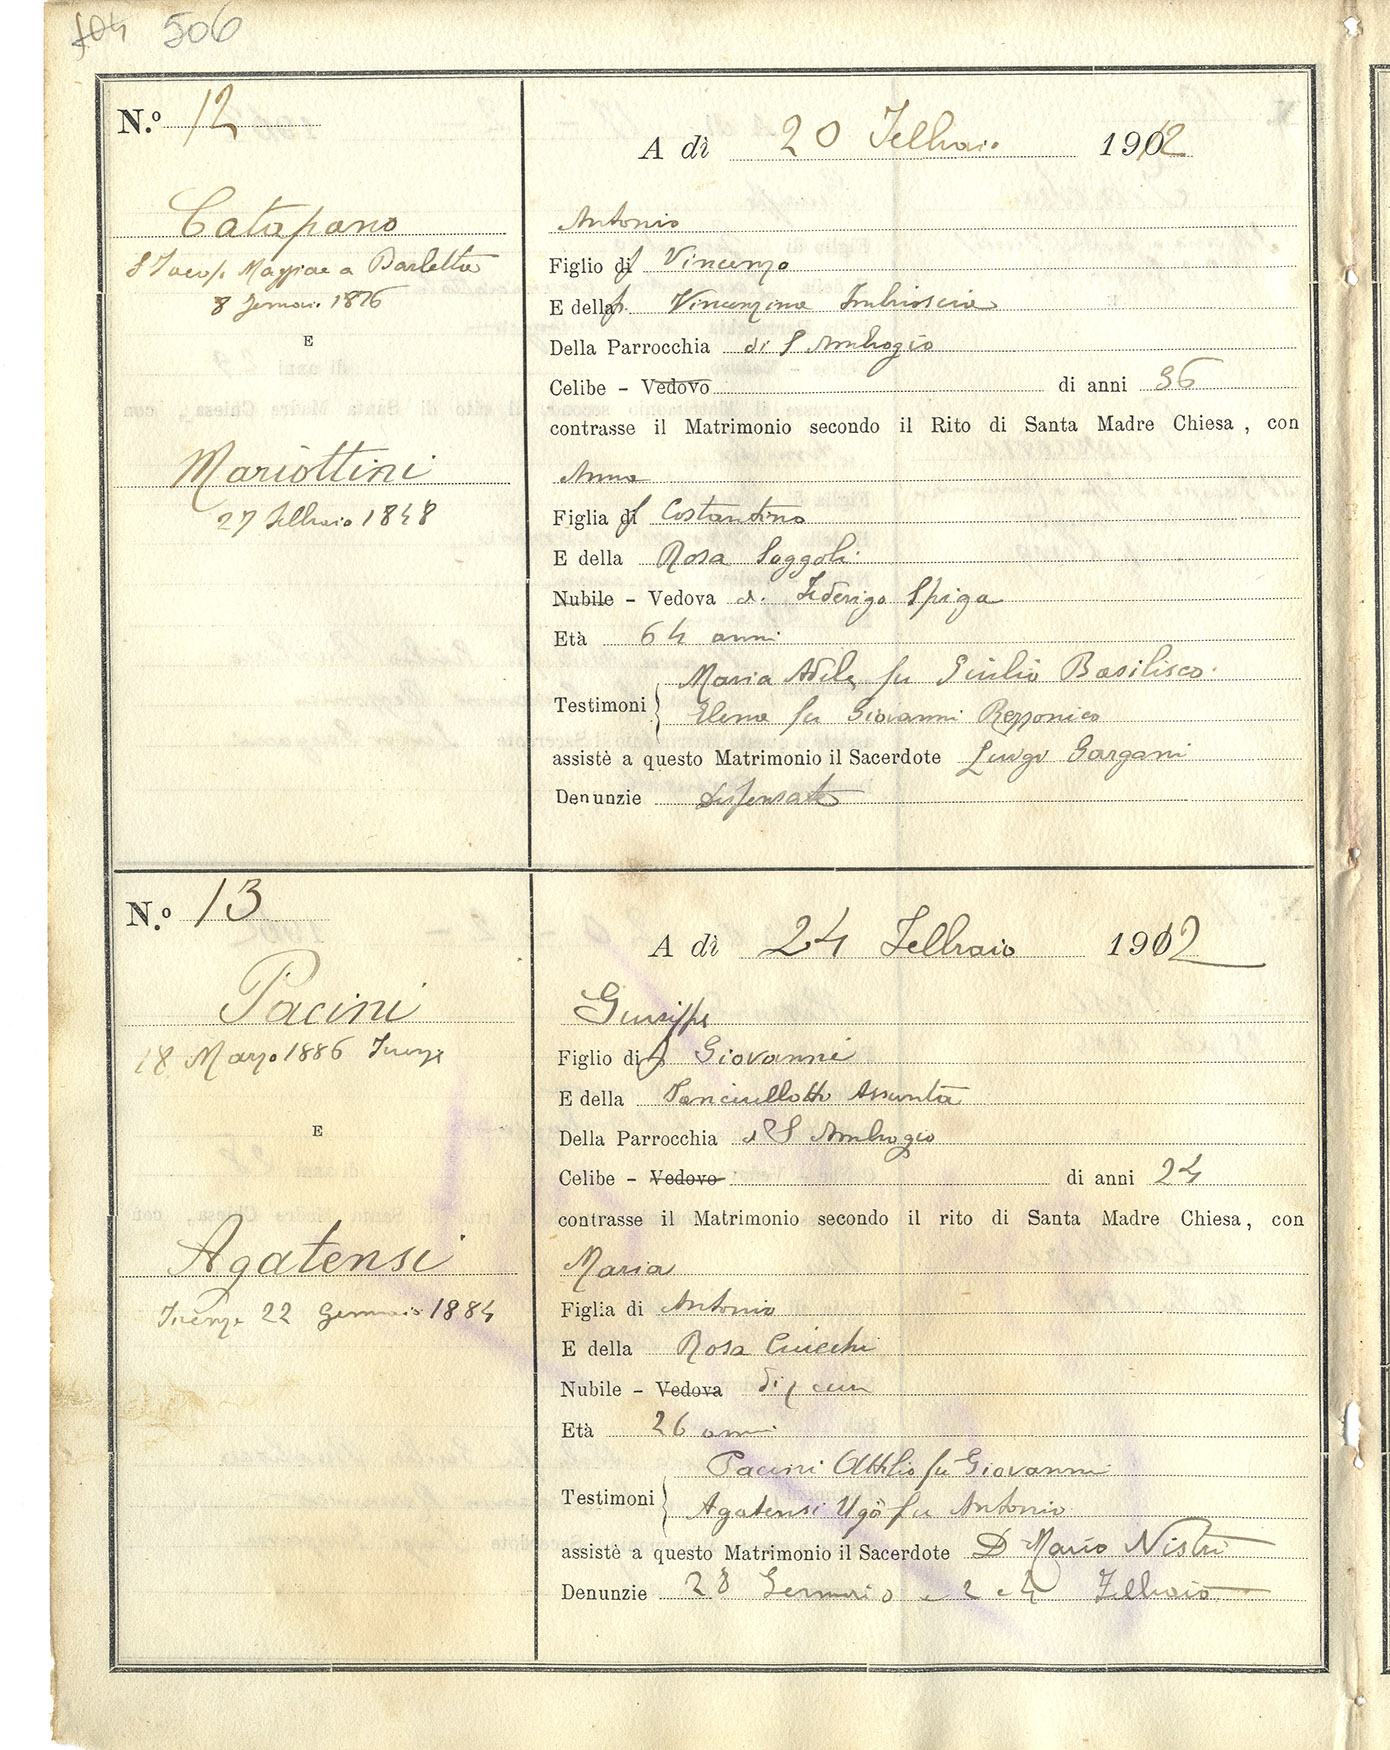 506
N.º 12
A dì 20 Febbraio 1912
Catapano
S Jacopo Maggiore a Barletta
8 Gennaio 1876
E
Mariottini
27 Febbraio 1848
Antonio
Figlio di f Vincenzo
E della f. Vincenzina Imbrioscia
Della Parrocchia di S Ambrogio
Celibe - Vedovo di anni 36
contrasse il Matrimonio secondo il Rito di Santa Madre Chiesa, con
Anna
Figlia di f Costantino
E della Rosa Soggoli
Nubile - Vedova di Federigo Spiga
Età 64 anni
Testimoni Maria Adele fu Giulio Basilisco
Elena fu Giovanni Rezzonico
assistè a questo Matrimonio il Sacerdote Luigi Gargani
Denunzie dispensate
N.º 13
A dì 24 Febbraio 1912
Pacini
18 Marzo 1886 Firenze
E
Agatensi
Firenze 22 Gennaio 1884
Giuseppe
Figlio di f Giovanni
E della Fanciullotti Assunta
Della Parrocchia di S Ambrogio
Celibe - Vedovo di anni 24
contrasse il Matrimonio secondo il rito di Santa Madre Chiesa, con
Maria
Figlia di Antonio
E della Rosa Ciucchi
Nubile - Vedova di
Età 26 anni
Testimoni Pacini Attilio fu Giovanni
Agatensi Ugo fu Antonio
assistè a questo Matrimonio il Sacerdote D Mario Nistri
Denunzie 28 Gennaio e 2 e 4 Febbraio